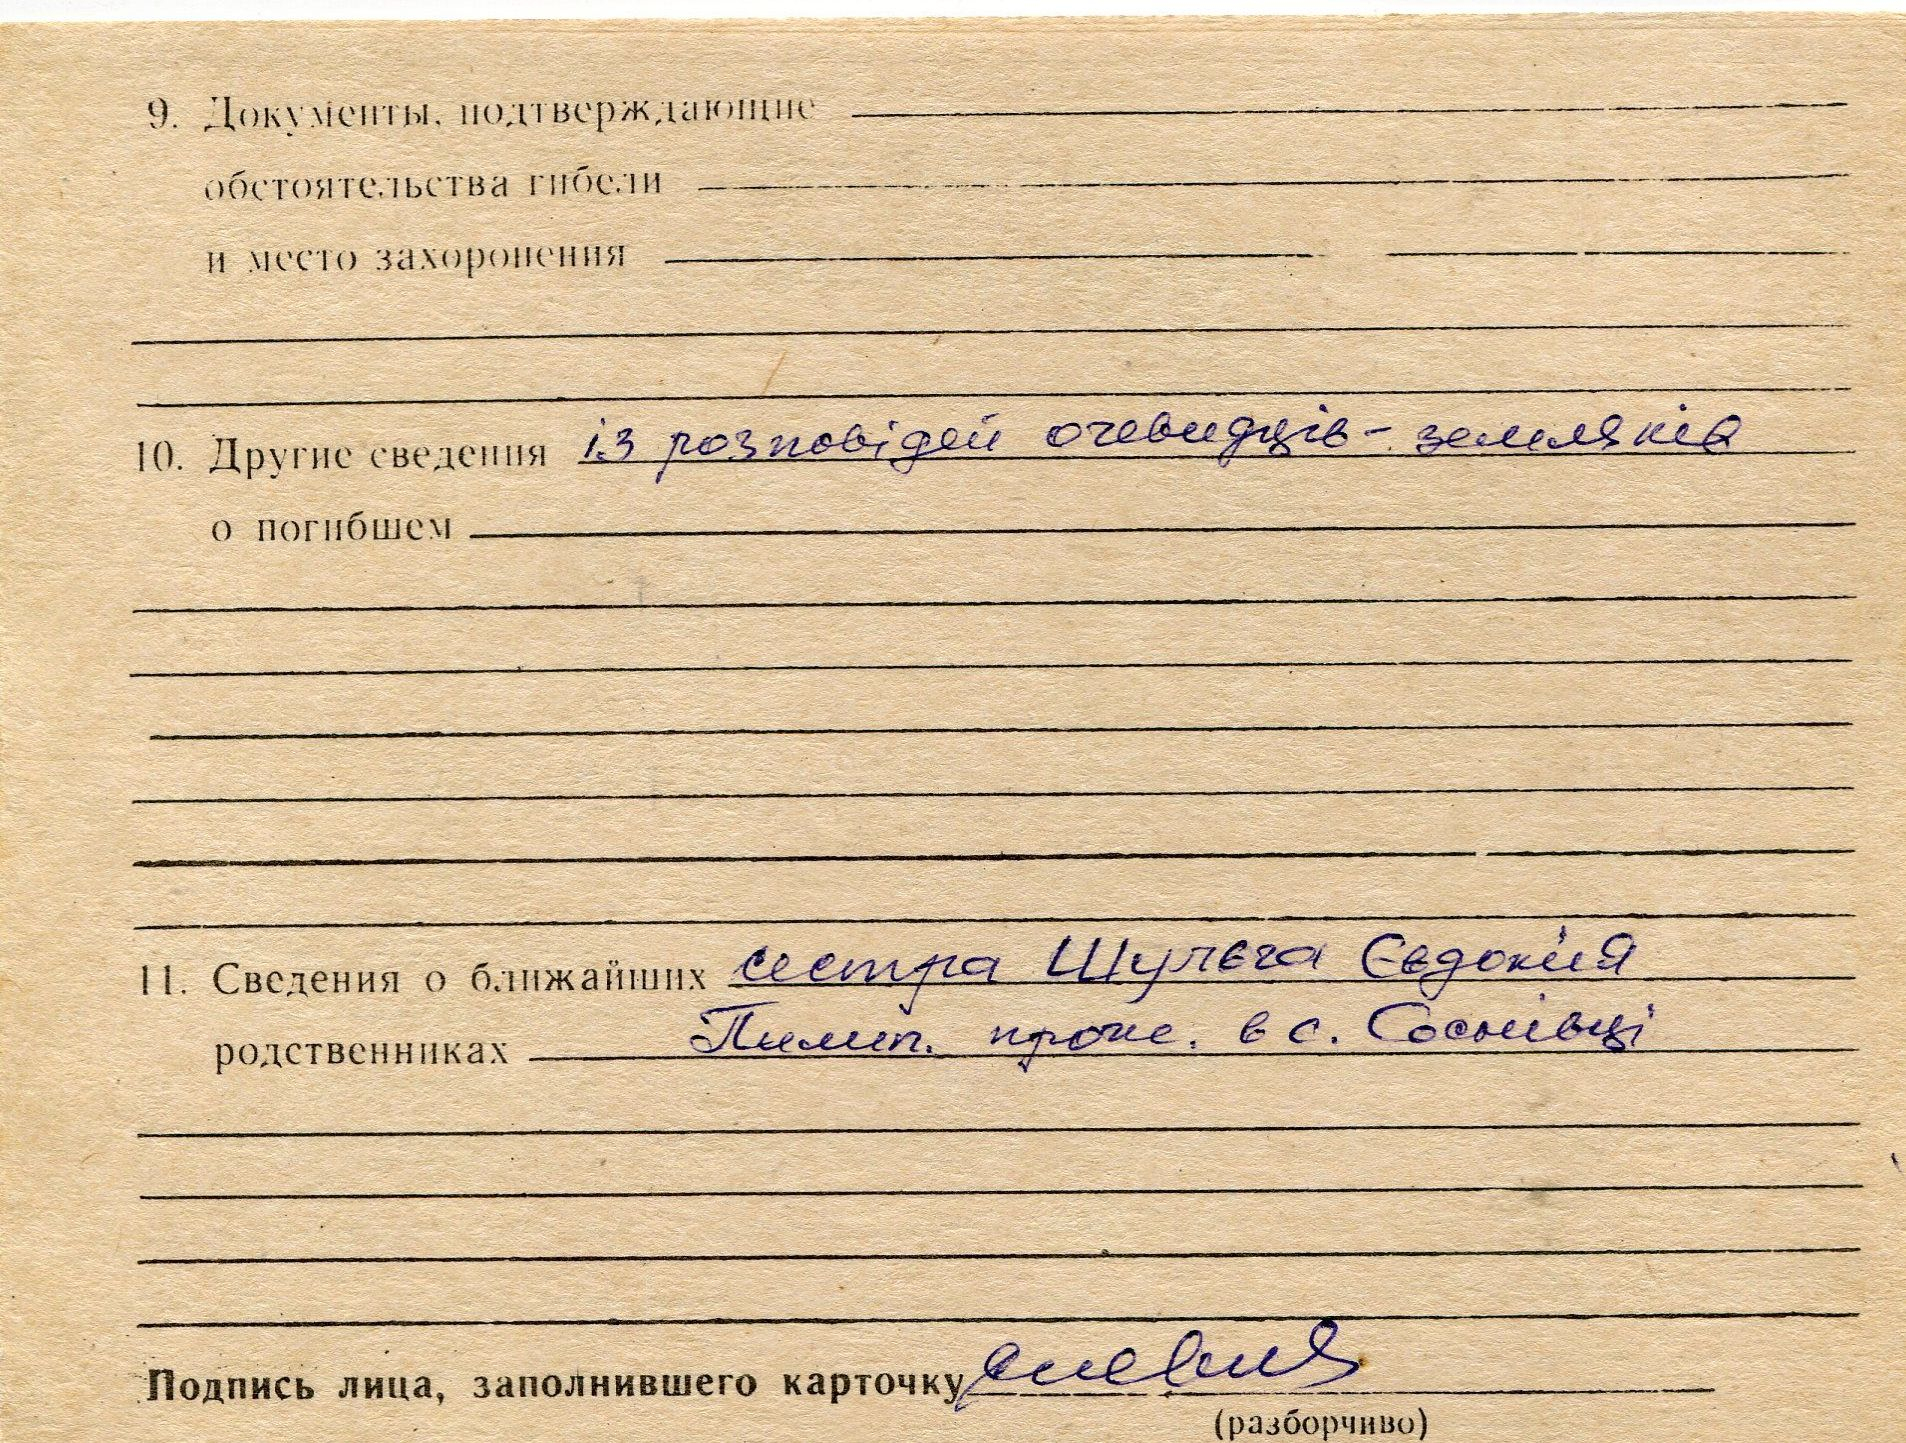 9. Документы, подтверждающие
обстоятельства гибели
и место захоронения
10. Другие сведения із розповідей очевидців - земляків
о погибшем
11. Сведения о ближайших сестра Шулєга Євдокія
родственниках Пилип. прож. в с. Соснівці
Подпись лица, заполнившего карточку
(разборчиво)